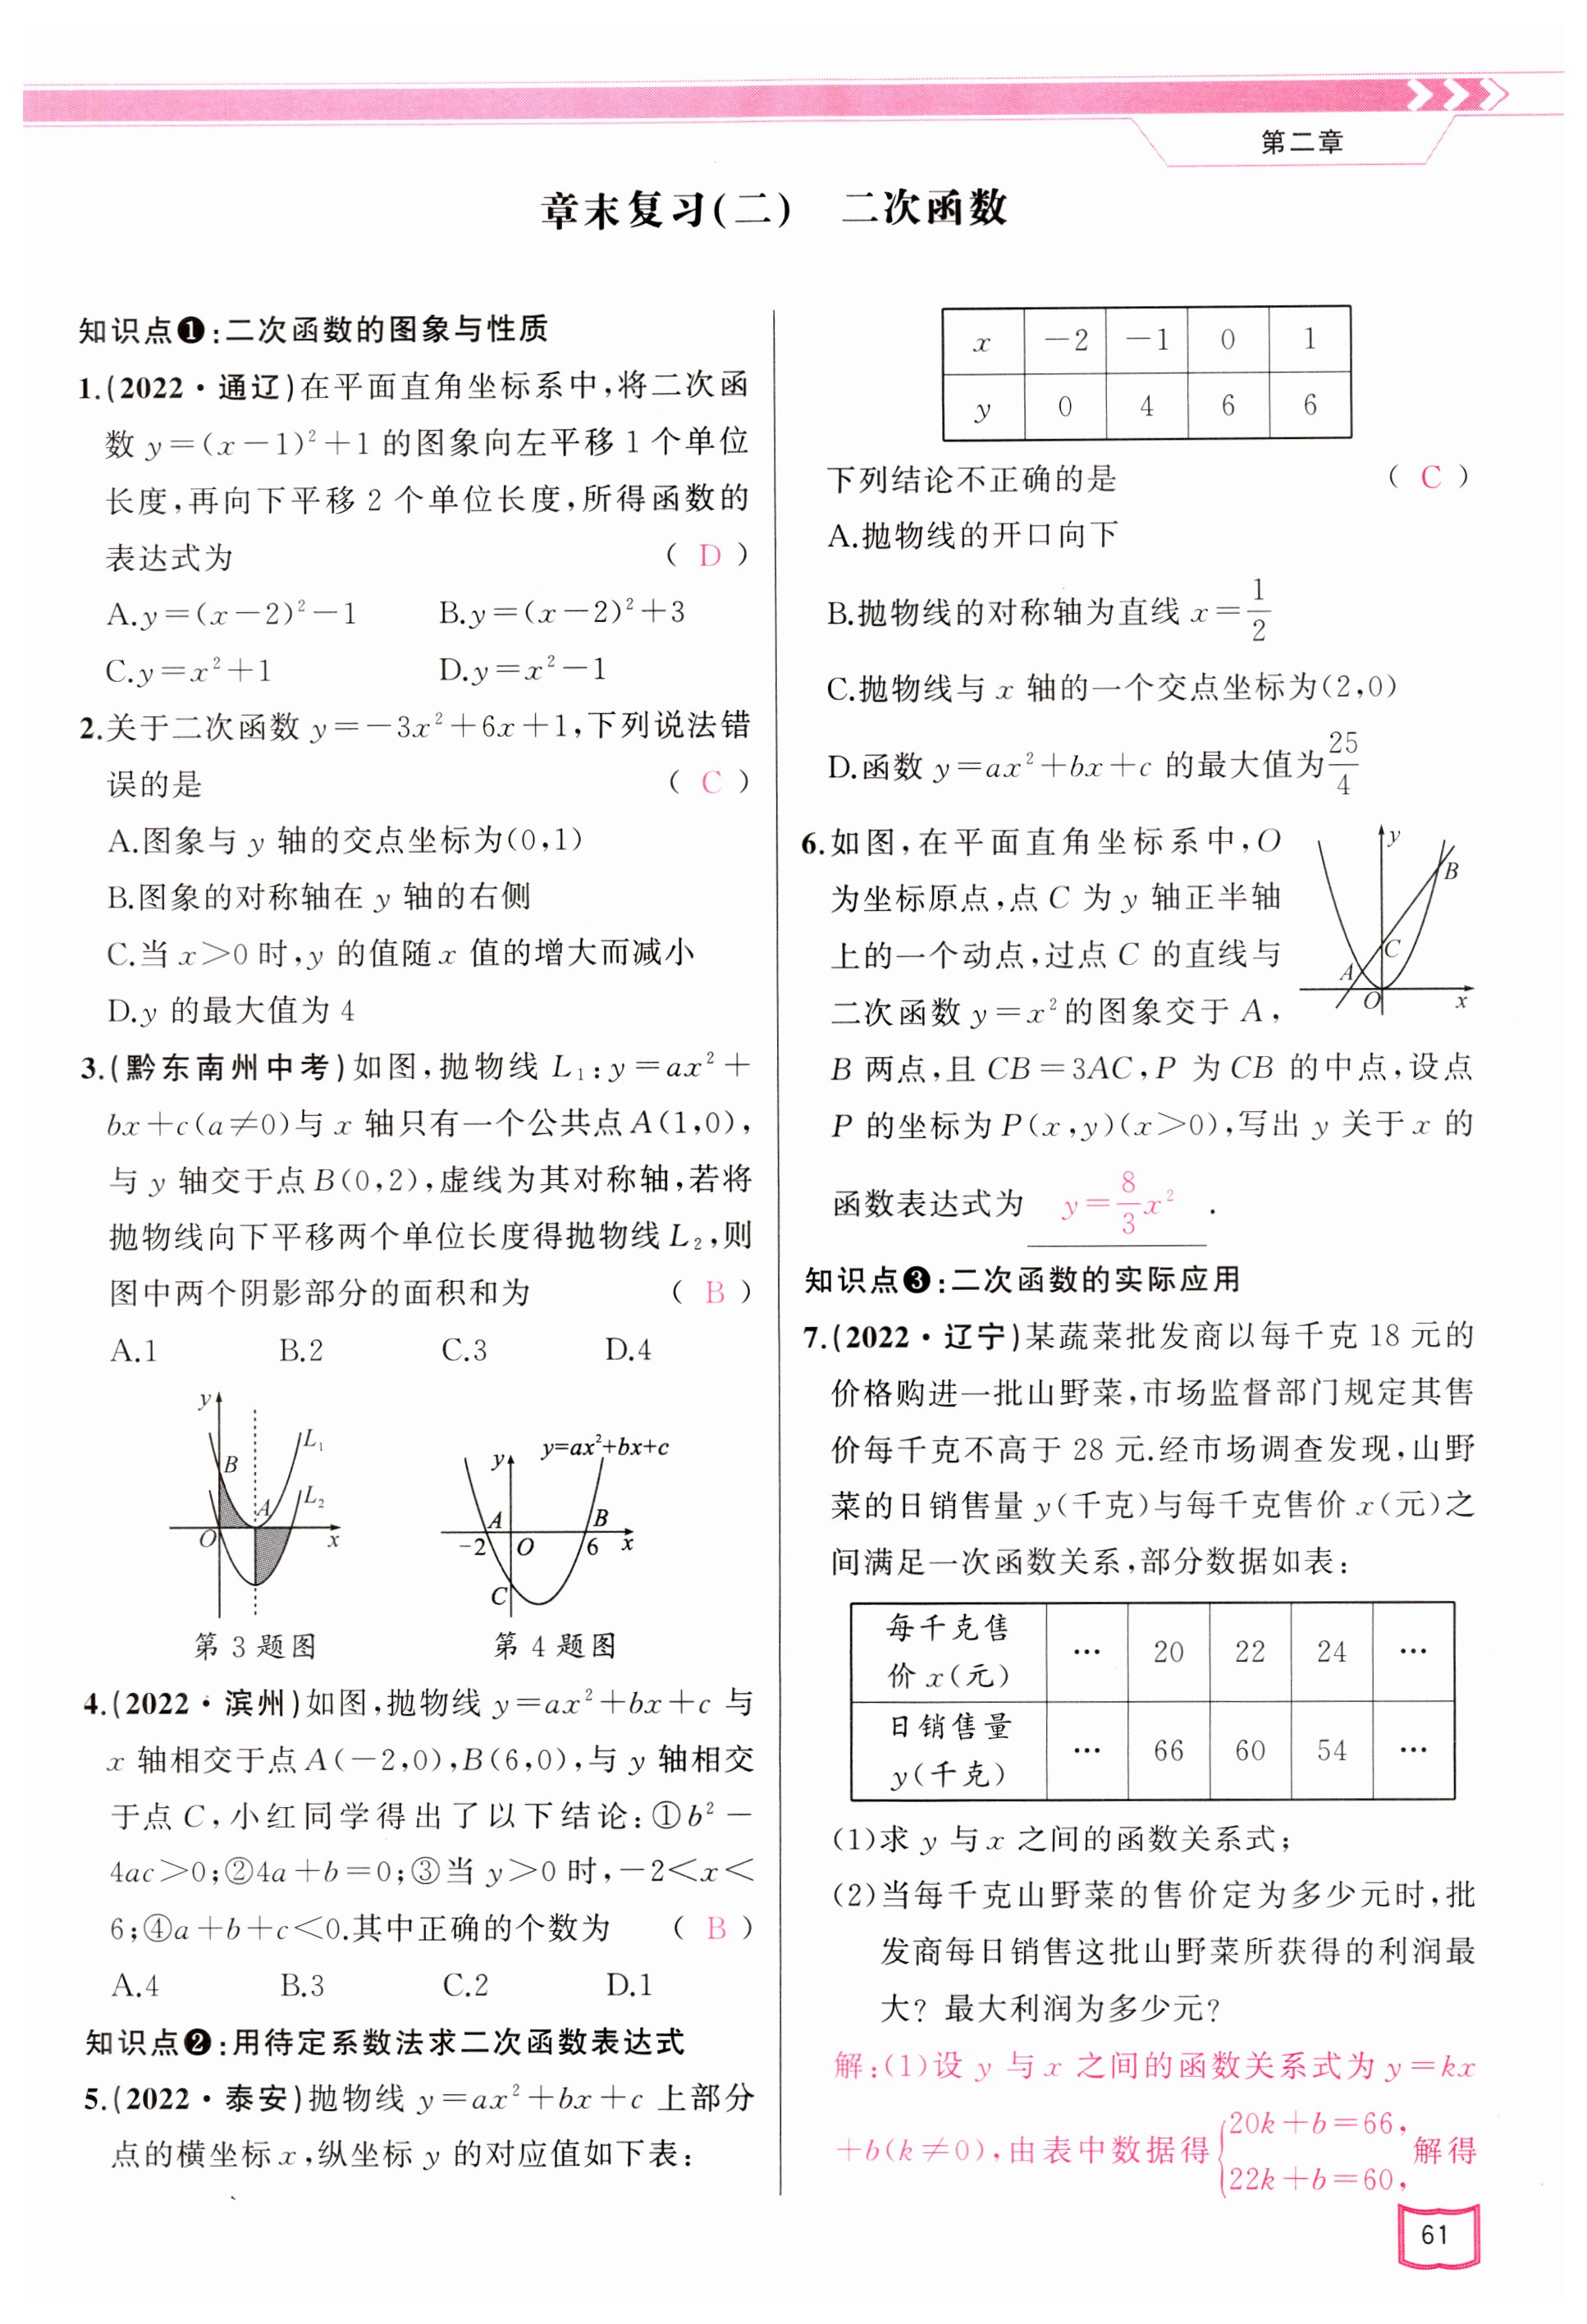 第二章
章末复习(二)　二次函数
知识点❶:二次函数的图象与性质
1.(2022·通辽)在平面直角坐标系中,将二次函
数 y=(x-1)²+1 的图象向左平移 1 个单位
长度,再向下平移 2 个单位长度,所得函数的
表达式为 ( D )
A.y=(x-2)²-1 B.y=(x-2)²+3
C.y=x²+1 D.y=x²-1
2.关于二次函数 y=-3x²+6x+1,下列说法错
误的是 ( C )
A.图象与 y 轴的交点坐标为(0,1)
B.图象的对称轴在 y 轴的右侧
C.当 x>0 时,y 的值随 x 值的增大而减小
D.y 的最大值为 4
3.(黔东南州中考)如图,抛物线 L₁:y=ax²+
bx+c(a≠0)与 x 轴只有一个公共点 A(1,0),
与 y 轴交于点 B(0,2),虚线为其对称轴,若将
抛物线向下平移两个单位长度得抛物线 L₂,则
图中两个阴影部分的面积和为 ( B )
A.1 B.2 C.3 D.4
y
L₁
B
A
L₂
O
x
第 3 题图
y=ax²+bx+c
y
A
B
-2
O
6
x
C
第 4 题图
4.(2022·滨州)如图,抛物线 y=ax²+bx+c 与
x 轴相交于点 A(-2,0),B(6,0),与 y 轴相交
于点 C,小红同学得出了以下结论:①b²-
4ac>0;②4a+b=0;③当 y>0 时,-2<x<
6;④a+b+c<0.其中正确的个数为 ( B )
A.4 B.3 C.2 D.1
知识点❷:用待定系数法求二次函数表达式
5.(2022·泰安)抛物线 y=ax²+bx+c 上部分
点的横坐标 x,纵坐标 y 的对应值如下表:
x -2 -1 0 1
y 0 4 6 6
下列结论不正确的是 ( C )
A.抛物线的开口向下
B.抛物线的对称轴为直线 x=1/2
C.抛物线与 x 轴的一个交点坐标为(2,0)
D.函数 y=ax²+bx+c 的最大值为25/4
6.如图,在平面直角坐标系中,O
为坐标原点,点 C 为 y 轴正半轴
上的一个动点,过点 C 的直线与
二次函数 y=x²的图象交于 A,
B 两点,且 CB=3AC,P 为 CB 的中点,设点
P 的坐标为 P(x,y)(x>0),写出 y 关于 x 的
函数表达式为 y=8/3x² .
y
B
C
A
O
x
知识点❸:二次函数的实际应用
7.(2022·辽宁)某蔬菜批发商以每千克 18 元的
价格购进一批山野菜,市场监督部门规定其售
价每千克不高于 28 元.经市场调查发现,山野
菜的日销售量 y(千克)与每千克售价 x(元)之
间满足一次函数关系,部分数据如表:
每千克售
价 x(元) … 20 22 24 …
日销售量
y(千克) … 66 60 54 …
(1)求 y 与 x 之间的函数关系式;
(2)当每千克山野菜的售价定为多少元时,批
发商每日销售这批山野菜所获得的利润最
大? 最大利润为多少元?
解:(1)设 y 与 x 之间的函数关系式为 y=kx
+b(k≠0),由表中数据得{20k+b=66, 22k+b=60,解得
61